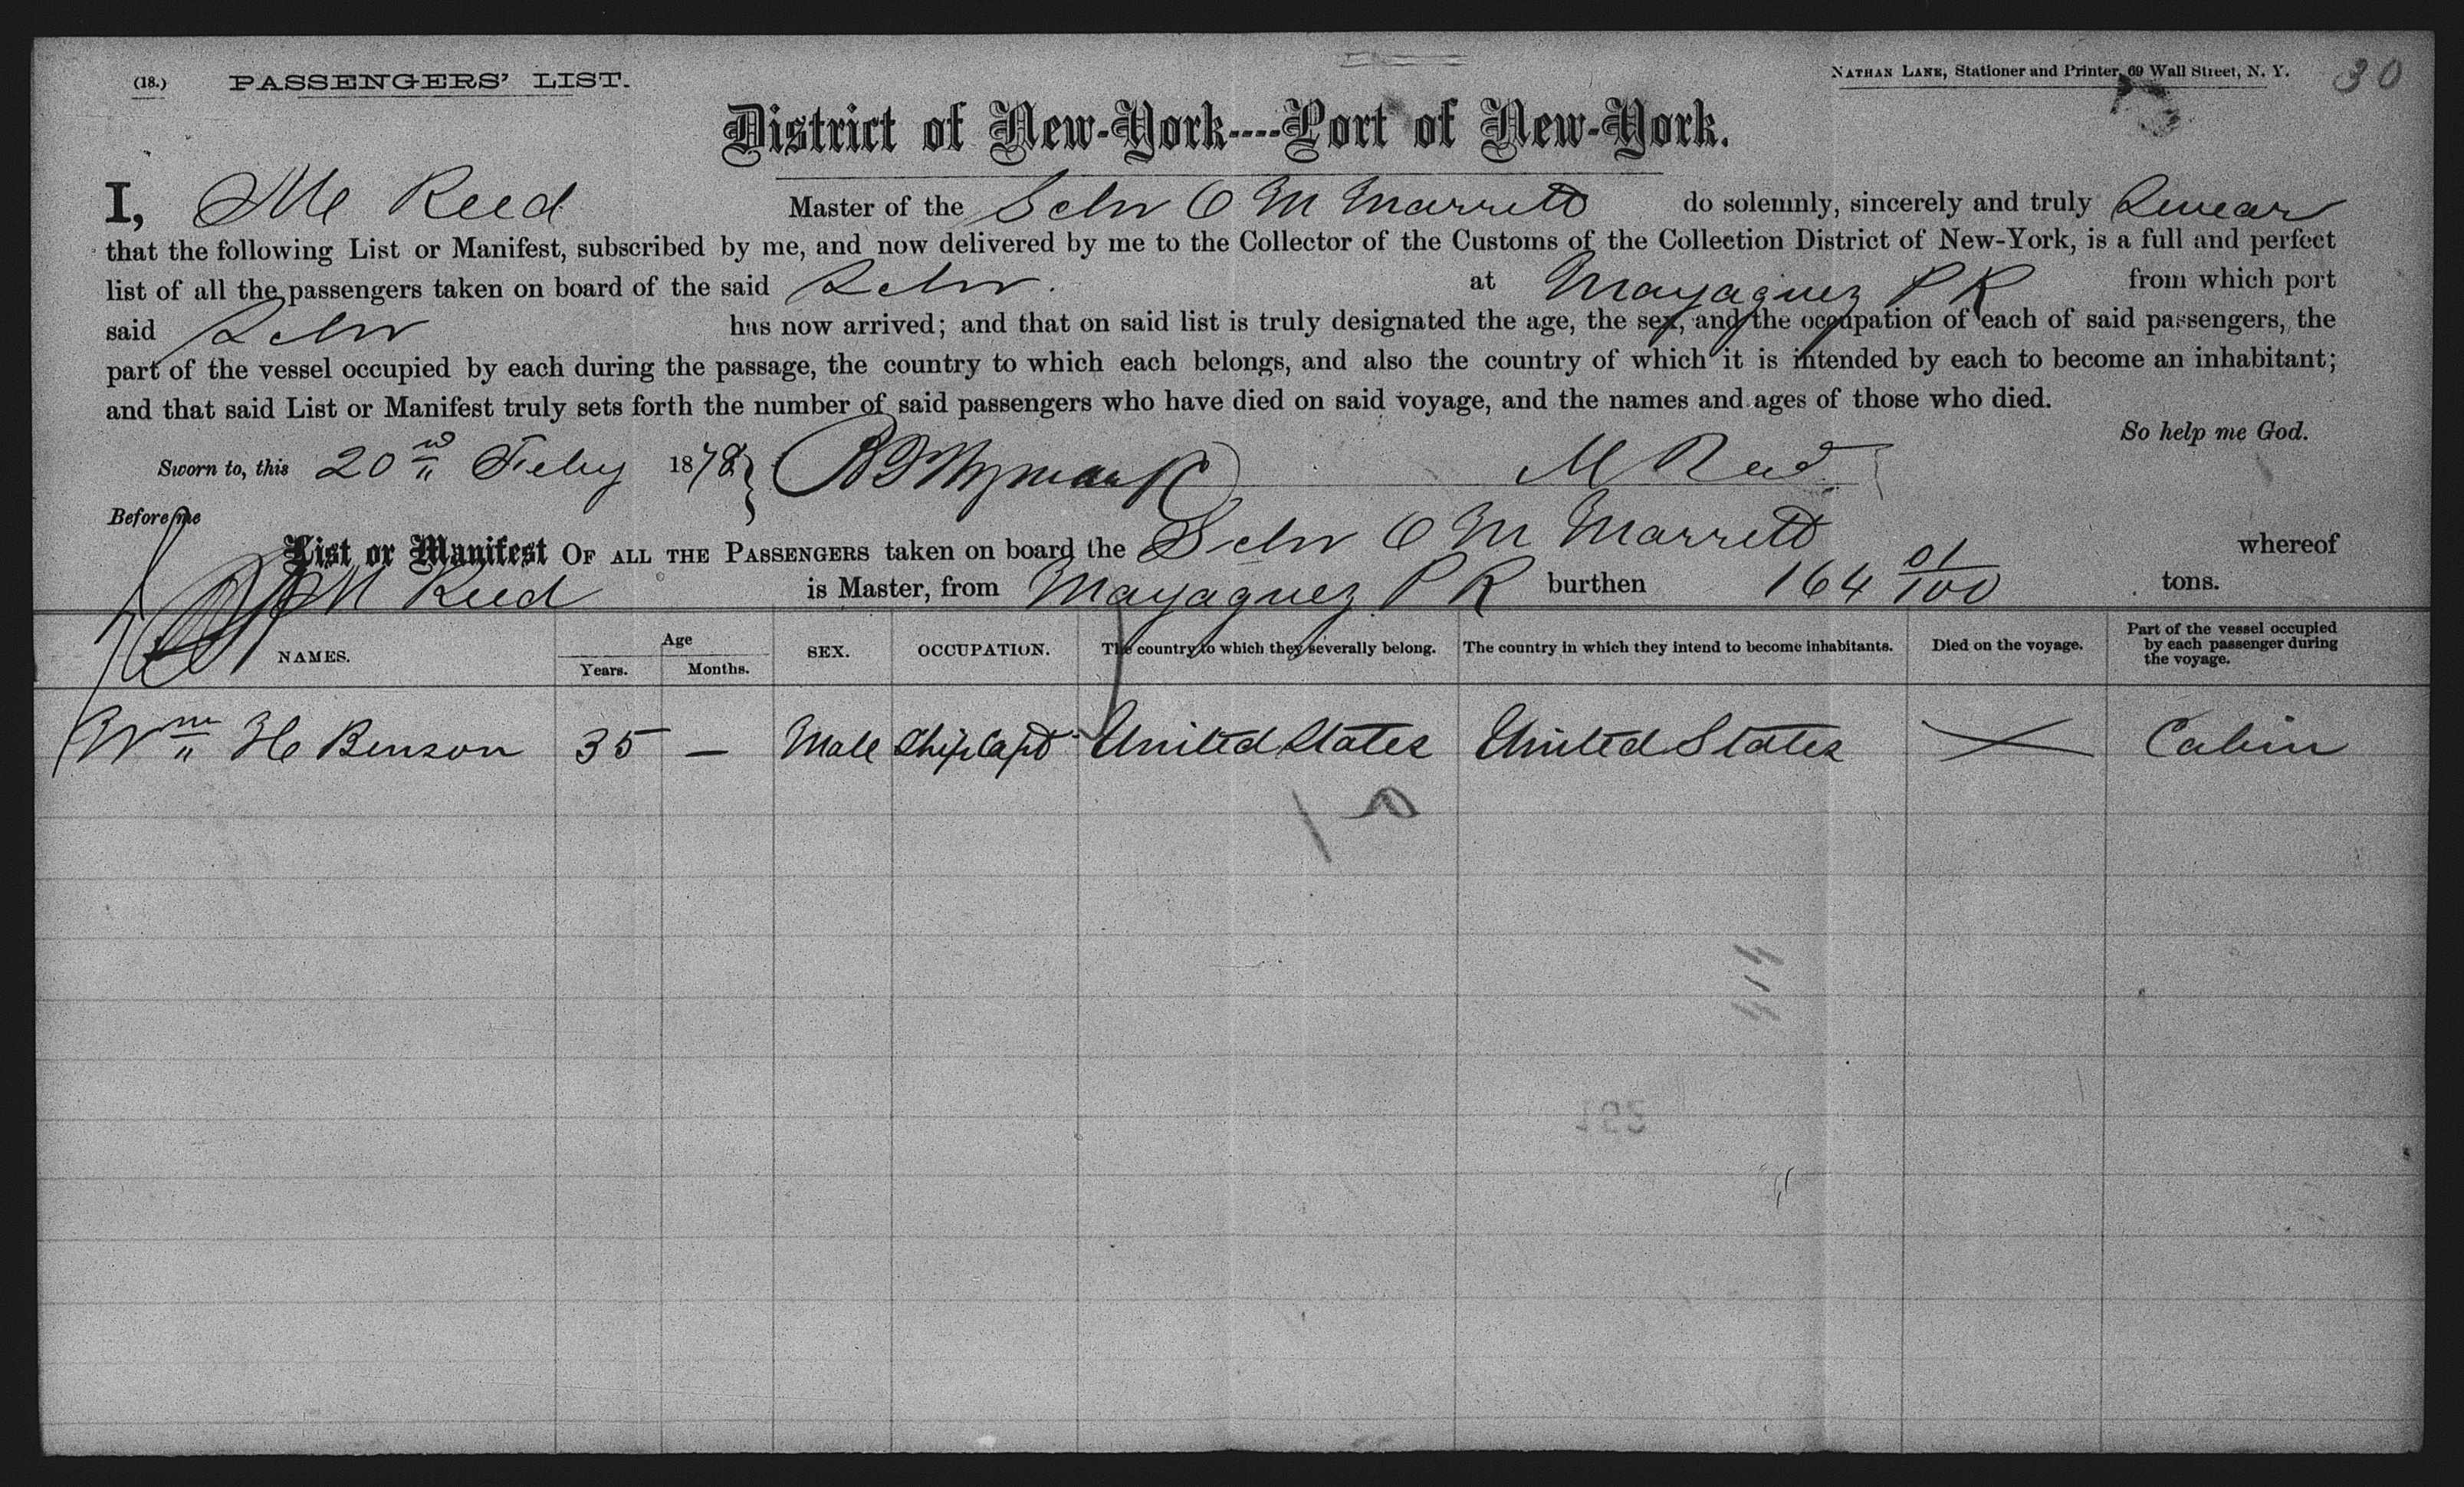 (18.) PASSENGERS' LIST. NATHAN LANE, Stationer and Printer, 69 Wall Street, N. Y. 30
District of New-York----Port of New-York.
I, M Reed Master of the Schr O M Marrett do solemnly, sincerely and truly Swear
that the following List or Manifest, subscribed by me, and now delivered by me to the Collector of the Customs of the Collection District of New-York, is a full and perfect
list of all the passengers taken on board of the said Schr. at Mayaguez P R from which port
said Schr has now arrived; and that on said list is truly designated the age, the sex, and the occupation of each of said passengers, the
part of the vessel occupied by each during the passage, the country to which each belongs, and also the country of which it is intended by each to become an inhabitant;
and that said List or Manifest truly sets forth the number of said passengers who have died on said voyage, and the names and ages of those who died.
So help me God.
Sworn to, this 20 Feby 1878 M Reed
Before me
List or Manifest OF ALL THE PASSENGERS taken on board the Schr O M Marrett whereof
M Reed is Master, from Mayaguez P R burthen 164 01/100 tons.
NAMES. Age Years. Months. SEX. OCCUPATION. The country to which they severally belong. The country in which they intend to become inhabitants. Died on the voyage. Part of the vessel occupied by each passenger during the voyage.
Wm H Benson 35 — Male Ship Capt United States United States Cabin